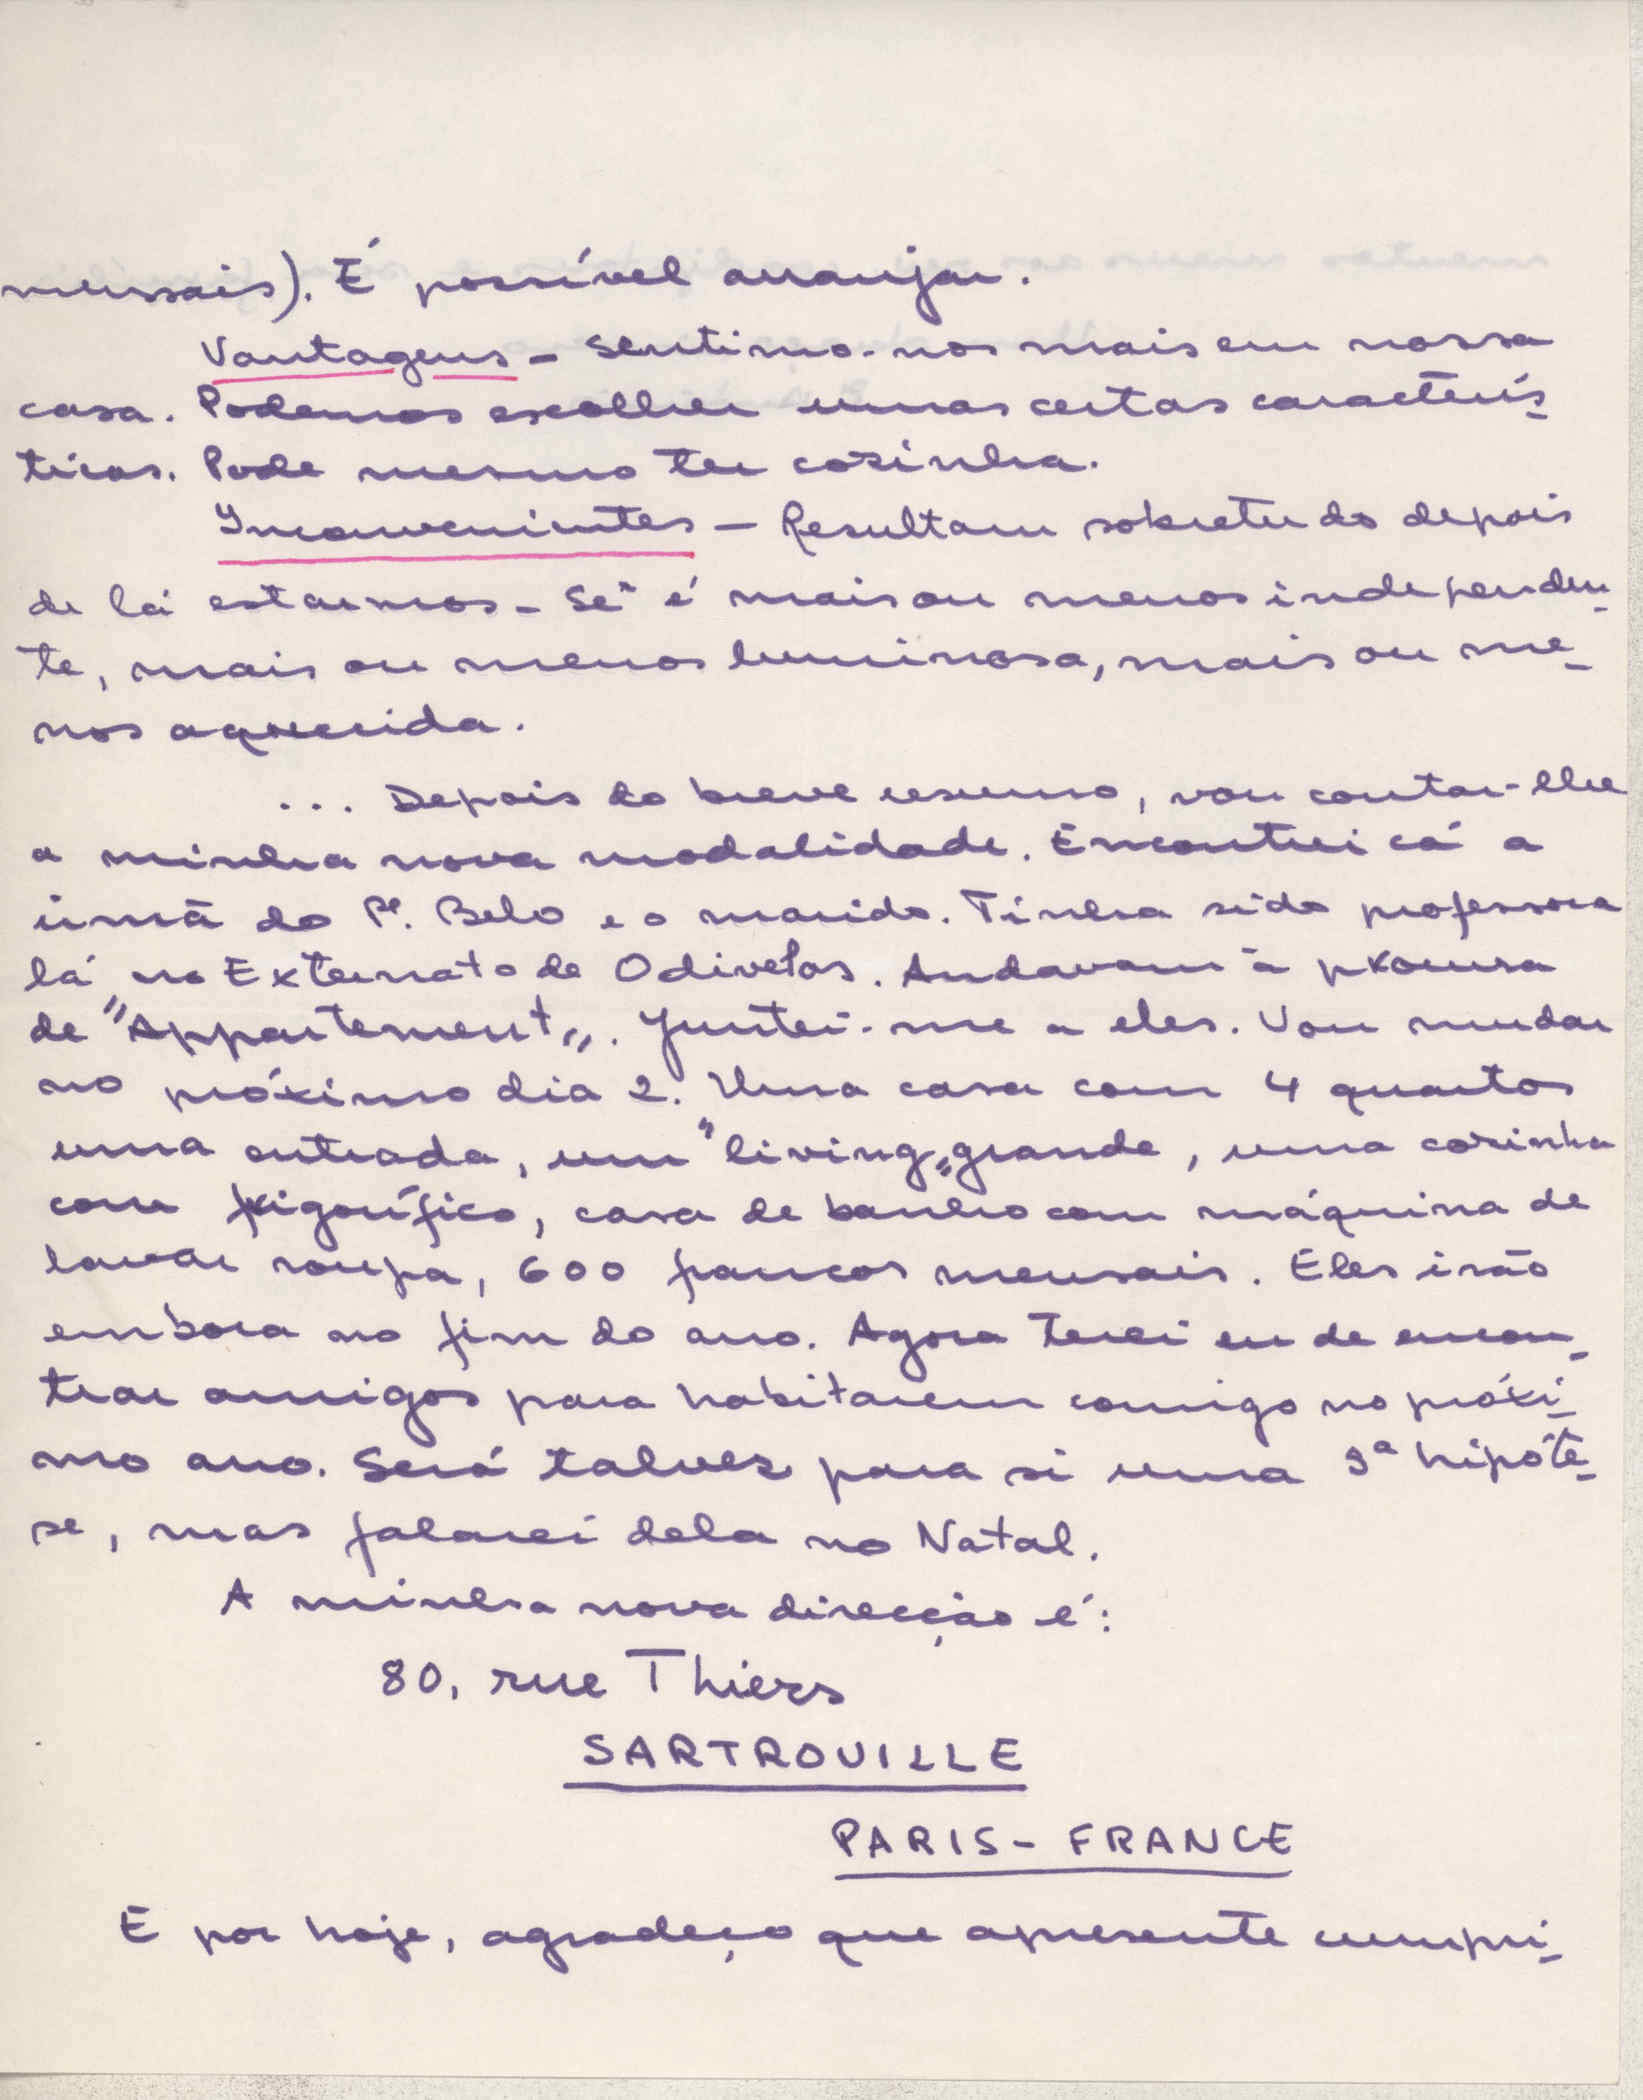 mensais). É possível arranjar.
Vantagens - Sentimo-nos mais em nossa
casa. Podemos escolher umas certas caracterís-
ticas. Pode mesmo ter cozinha.
Inconvenientes - Resultam sobretudo depois
de lá estarmos - Se é mais ou menos independen-
te, mais ou menos luminosa, mais ou me-
nos aquecida.
... Depois do breve resumo, vou contar-lhe
a minha nova modalidade. Encontrei cá a
irmã do Pe. Belo e o marido. Tinha sido professora
lá no Externato de Odivelas. Andavam à procura
de "Appartement". Juntei-me a eles. Vou mudar
no próximo dia 2. Uma casa com 4 quartos
uma entrada, um "living" grande, uma cozinha
com frigorífico, casa de banho com máquina de
lavar roupa, 600 francos mensais. Eles irão
embora no fim do ano. Agora terei eu de encon-
trar amigos para habitarem comigo no próxi-
mo ano. Será talvez para si uma 3ª hipóte-
se, mas falarei dela no Natal.
A minha nova direcção é:
80, rue Thiers
SARTROUVILLE
PARIS - FRANCE
E por hoje, agradeço que apresente cumpri-